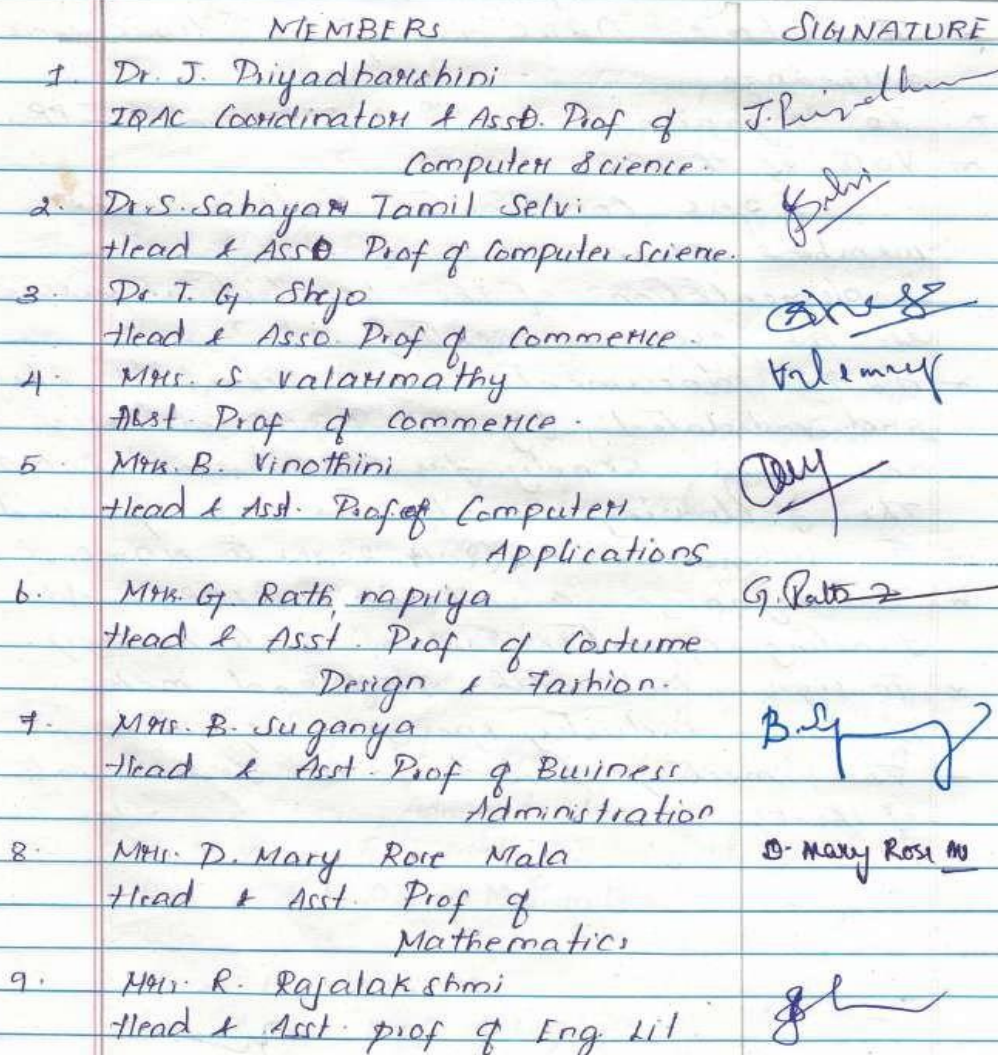 MEMBERS SIGNATURE
1. Dr. J. Priyadharshini
IQAC Coordinator & Asso. Prof of J. Priyadhar
Computer Science.
2. Dr. S. Sahayar Tamil Selvi Selvi
Head & Asso Prof of Computer Sciene.
3. Dr. T. G. Shejo
Head & Asso. Prof of Commerce.
4. Mrs. S Valarmathy
Asst. Prof of Commerce.
5 Mrs. B. Vinothini
Head & Asst. Prof. of Computer
Applications
6. Mrs. G. Rath, napriya G. Rath
Head & Asst. Prof of Costume
Design & Fashion.
7. Mrs. B. Suganya B.
Head & Asst. Prof of Business
Administration
8. Mrs. D. Mary Rose Mala D. Mary Rose M
Head & Asst. Prof of
Mathematics
9. Mrs. R. Rajalakshmi
Head & Asst. prof of Eng. Lit